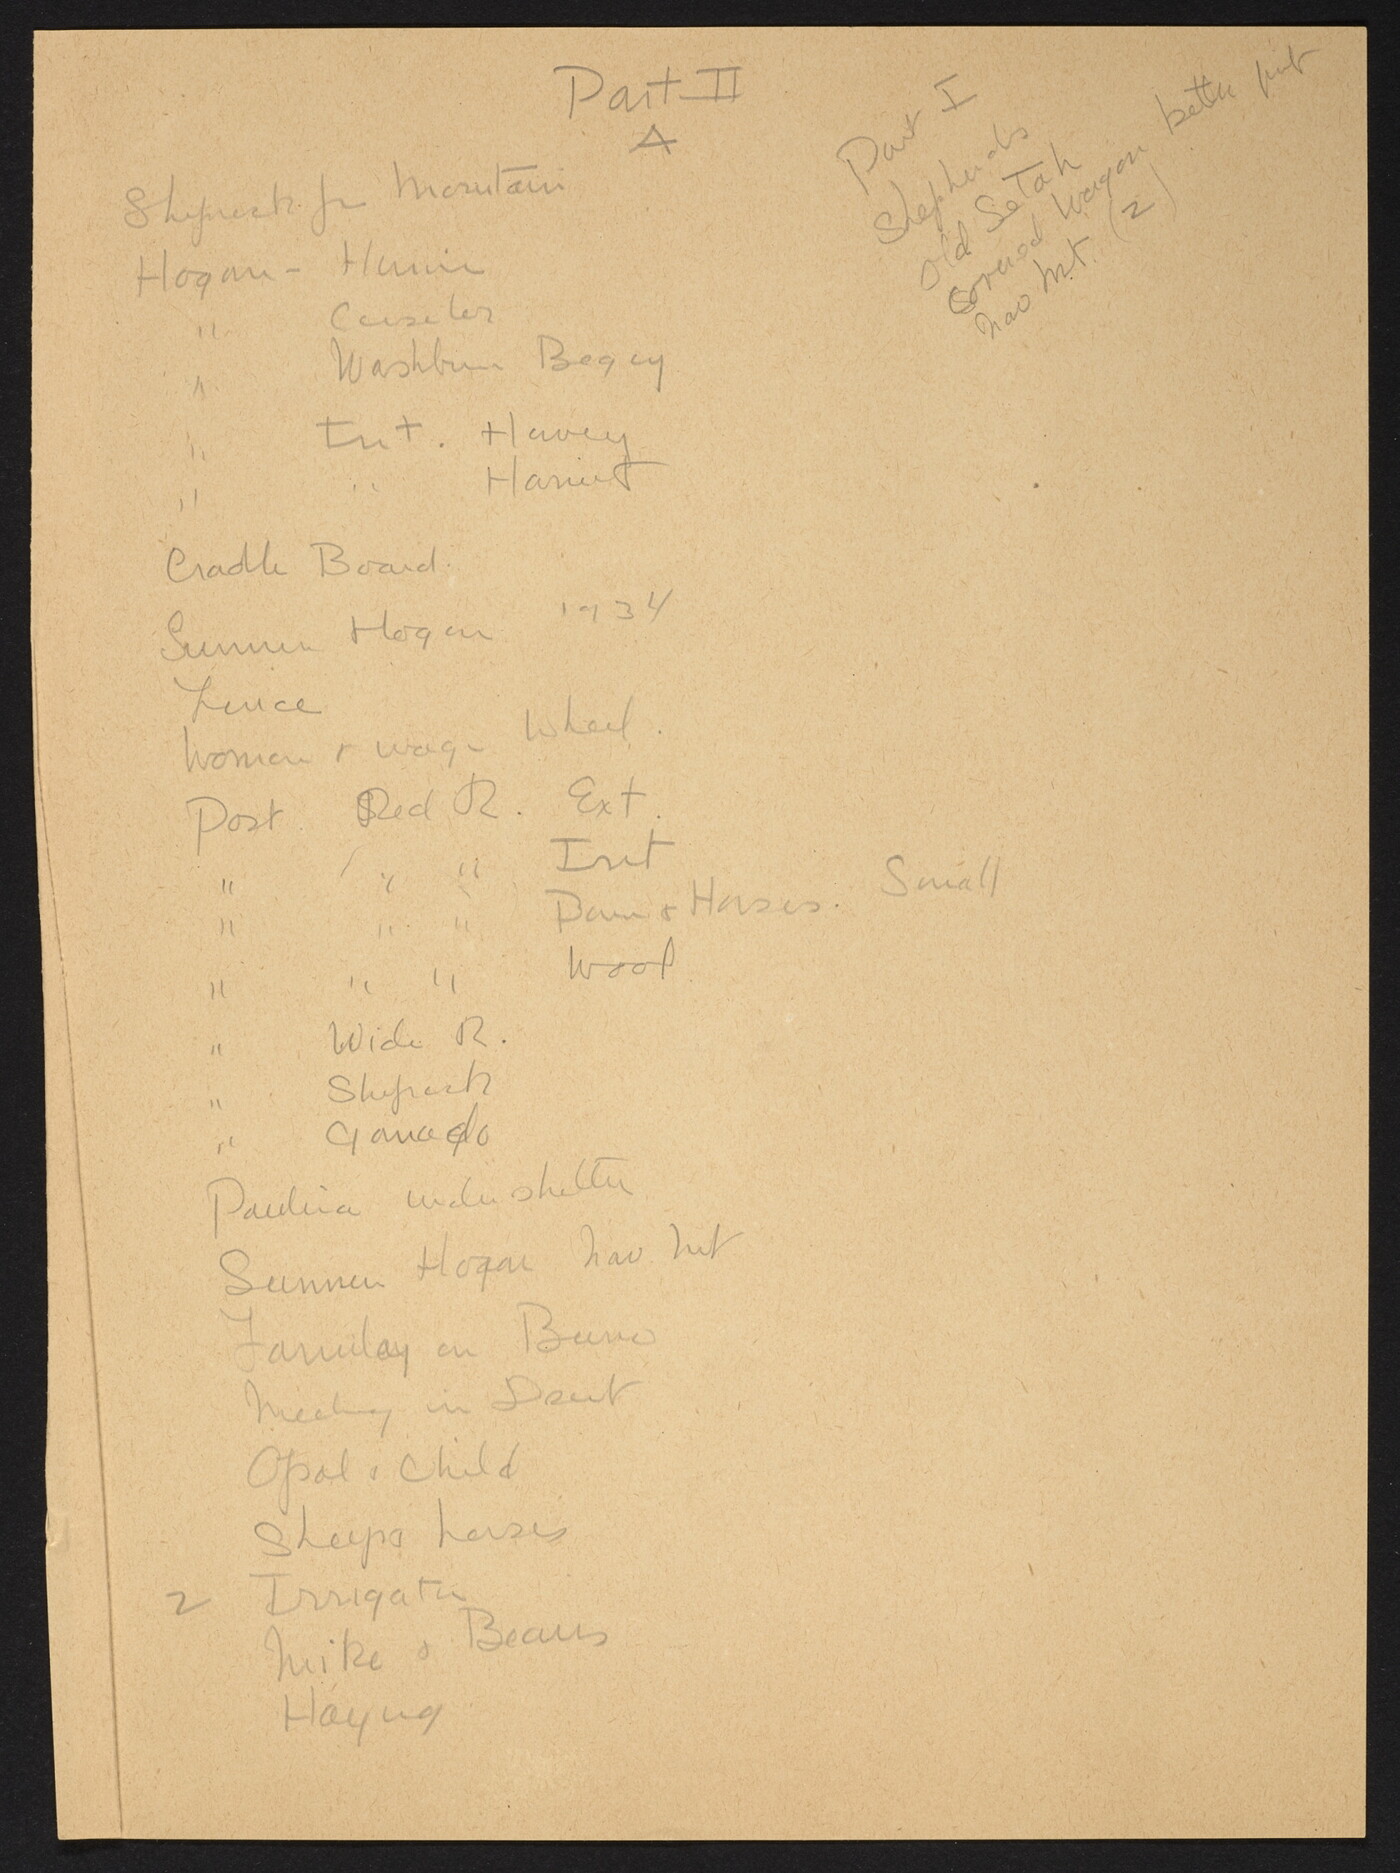 Part II
A
Shiprock fr Mountain
Hogan -
"
" Washburn Begay
" Int. Harvey
" " Harriet
Cradle Board.
Summer Hogan 1934
Fence
Woman & wagon Wheel.
Post Red R. Ext.
" " " Int
" " " Dam & Horses. Small
" " " Wool
" Wide R.
" Shiprock
" Ganado
Paulina under shelter
Summer Hogan Nav Mt
Family on Burro
Meeting in Desert
Opal & Child
Sheep & horses
2 Irrigatn
Mike & Beans
Haying
Part I
Shepherds
Old Setah
Covered Wagon better print
Nav Mt. (2)